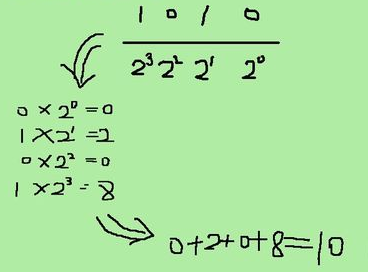 1 0 1 0
2³ 2² 2¹ 2⁰
0 × 2⁰ = 0
1 × 2¹ = 2
0 × 2² = 0
1 × 2³ = 8
0+2+0+8=10